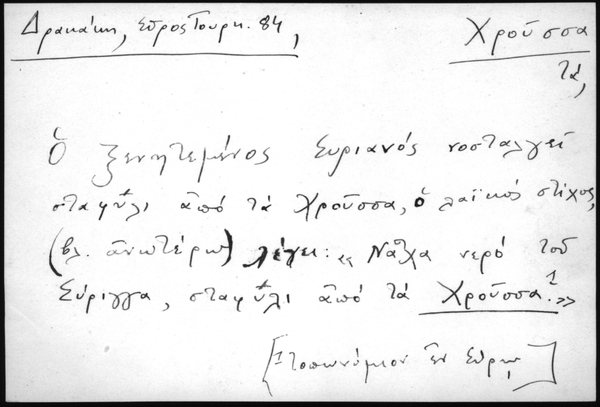 Δρακάκη, Σῦρος Τουρκ. 84,
Χροῦσσα
τά,
Ὁ ξενητεμένος Συριανός νοσταλγεῖ
σταφύλι ἀπό τά Χροῦσσα, ὁ λαϊκός στίχος,
(βλ. ἀνωτέρω) λέγει: «Νἆχα νερό τοῦ
Σύριγγα, σταφύλι ἀπό τά Χροῦσσα.¹»
[¹ τοπωνύμιον ἐν Σύρῳ]